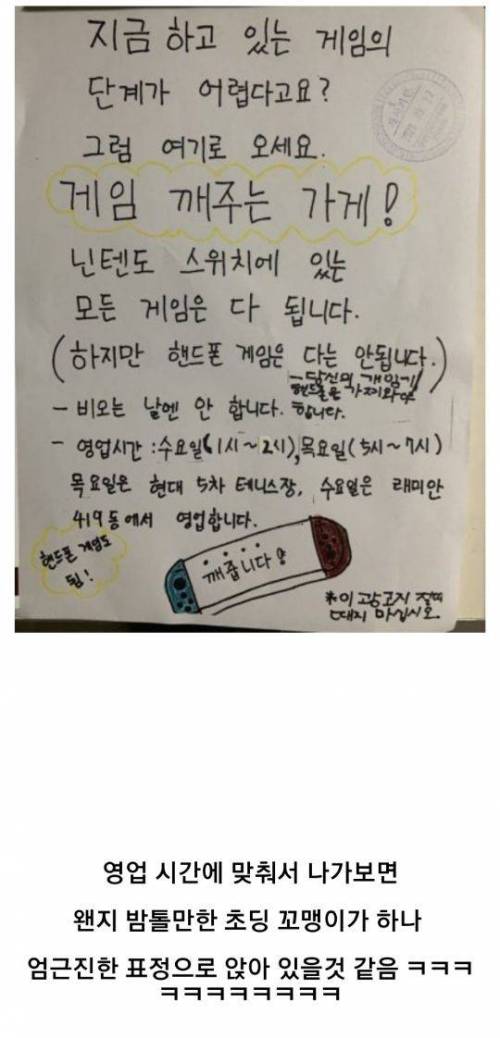 지금 하고 있는 게임의
단계가 어렵다고요?
그럼 여기로 오세요.
게임 깨주는 가게!
닌텐도 스위치에 있는
모든 게임은 다 됩니다.
(하지만 핸드폰 게임은 다는 안됩니다.)
- 당신의 게임기/
핸드폰을 가져와야
합니다.
- 비오는 날엔 안 합니다.
- 영업시간 : 수요일(1시~2시), 목요일(5시~7시)
목요일은 현대 5차 테니스장, 수요일은 래미안
419동에서 영업합니다.
핸드폰 게임도
됨!
깨줍니다!
*이 광고지 절대
떼지 마십시오
영업 시간에 맞춰서 나가보면
왠지 밤톨만한 초딩 꼬맹이가 하나
엄근진한 표정으로 앉아 있을것 같음 ㅋㅋㅋ
ㅋㅋㅋㅋㅋㅋㅋㅋ